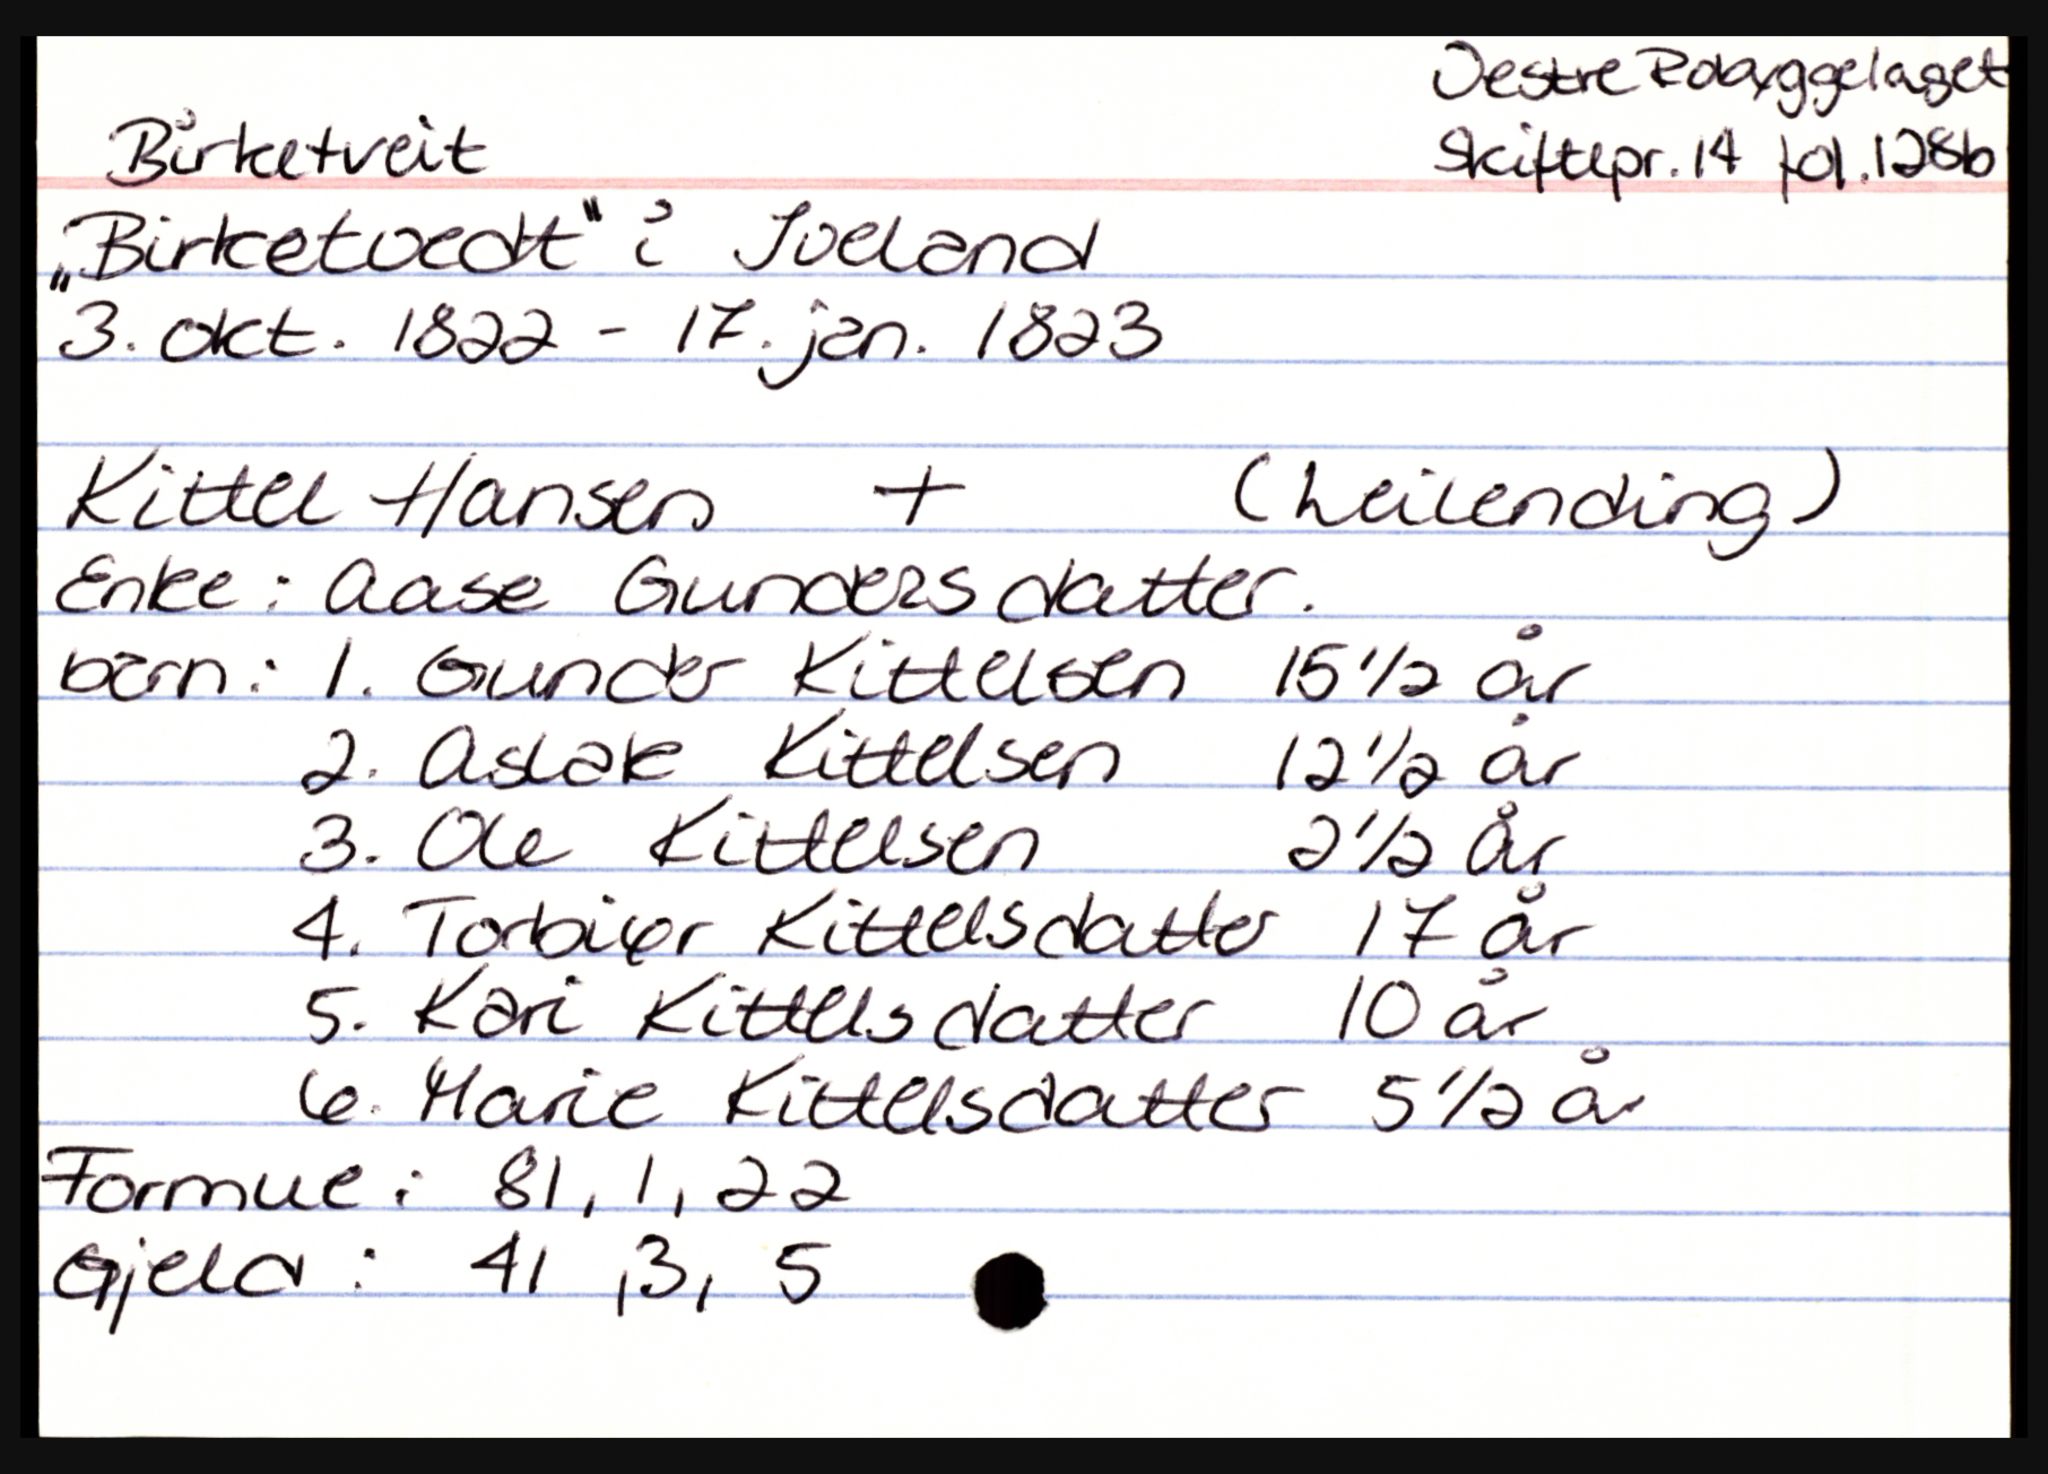 Vestre Robyggelaget
Birketveit
Skiftepr. 14 fol. 128b
"Birketvedt" i Iveland
3. okt. 1822 - 17. jan. 1823
Kittel Hansen + (Leilending)
Enke: Aase Gundersdatter.
barn: 1. Gunder Kittelsen 15 1/2 år
2. Aslak Kittelsen 12 1/2 år
3. Ole Kittelsen 2 1/2 år
4. Torbiør Kittelsdatter 17 år
5. Kari Kittelsdatter 10 år
6. Marie Kittelsdatter 5 1/2 år
Formue: 81, 1, 22
Gjeld: 41, 3, 5